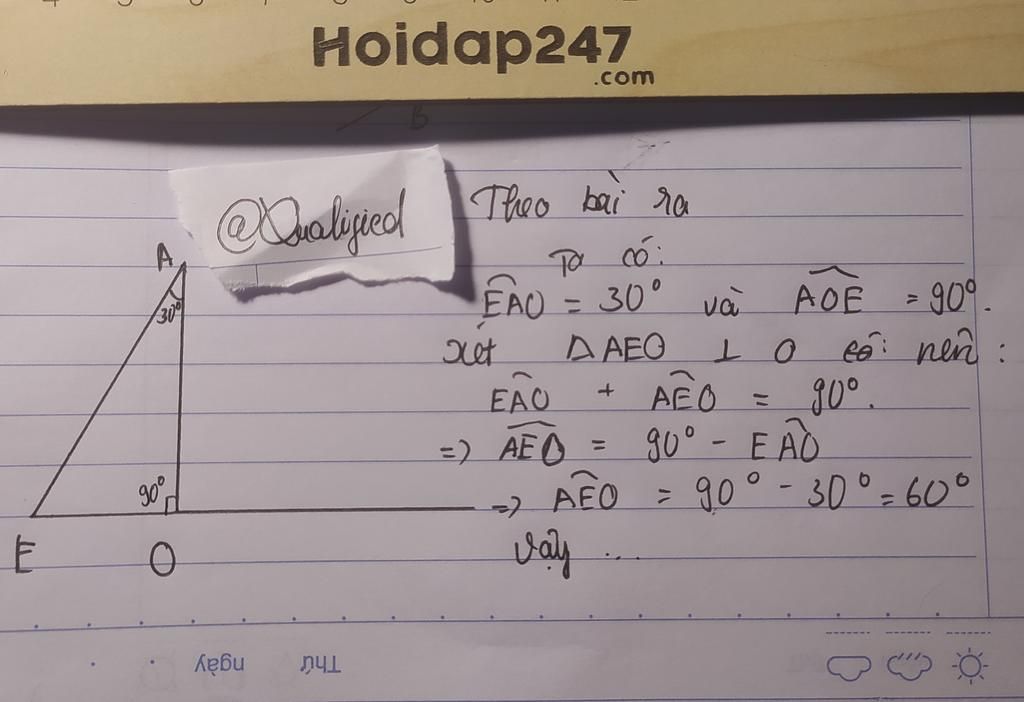 Hoidap247
.com
B
@Qualified
Theo bài ra
Ta có:
EAO = 30° và AOE = 90°.
Xét ΔAEO ⊥ O có: nên :
EAO + AEO = 90°.
=> AEO = 90° - EAO
=> AEO = 90° - 30° = 60°
Vậy ...
A
30°
90°
E O
Thứ ngày